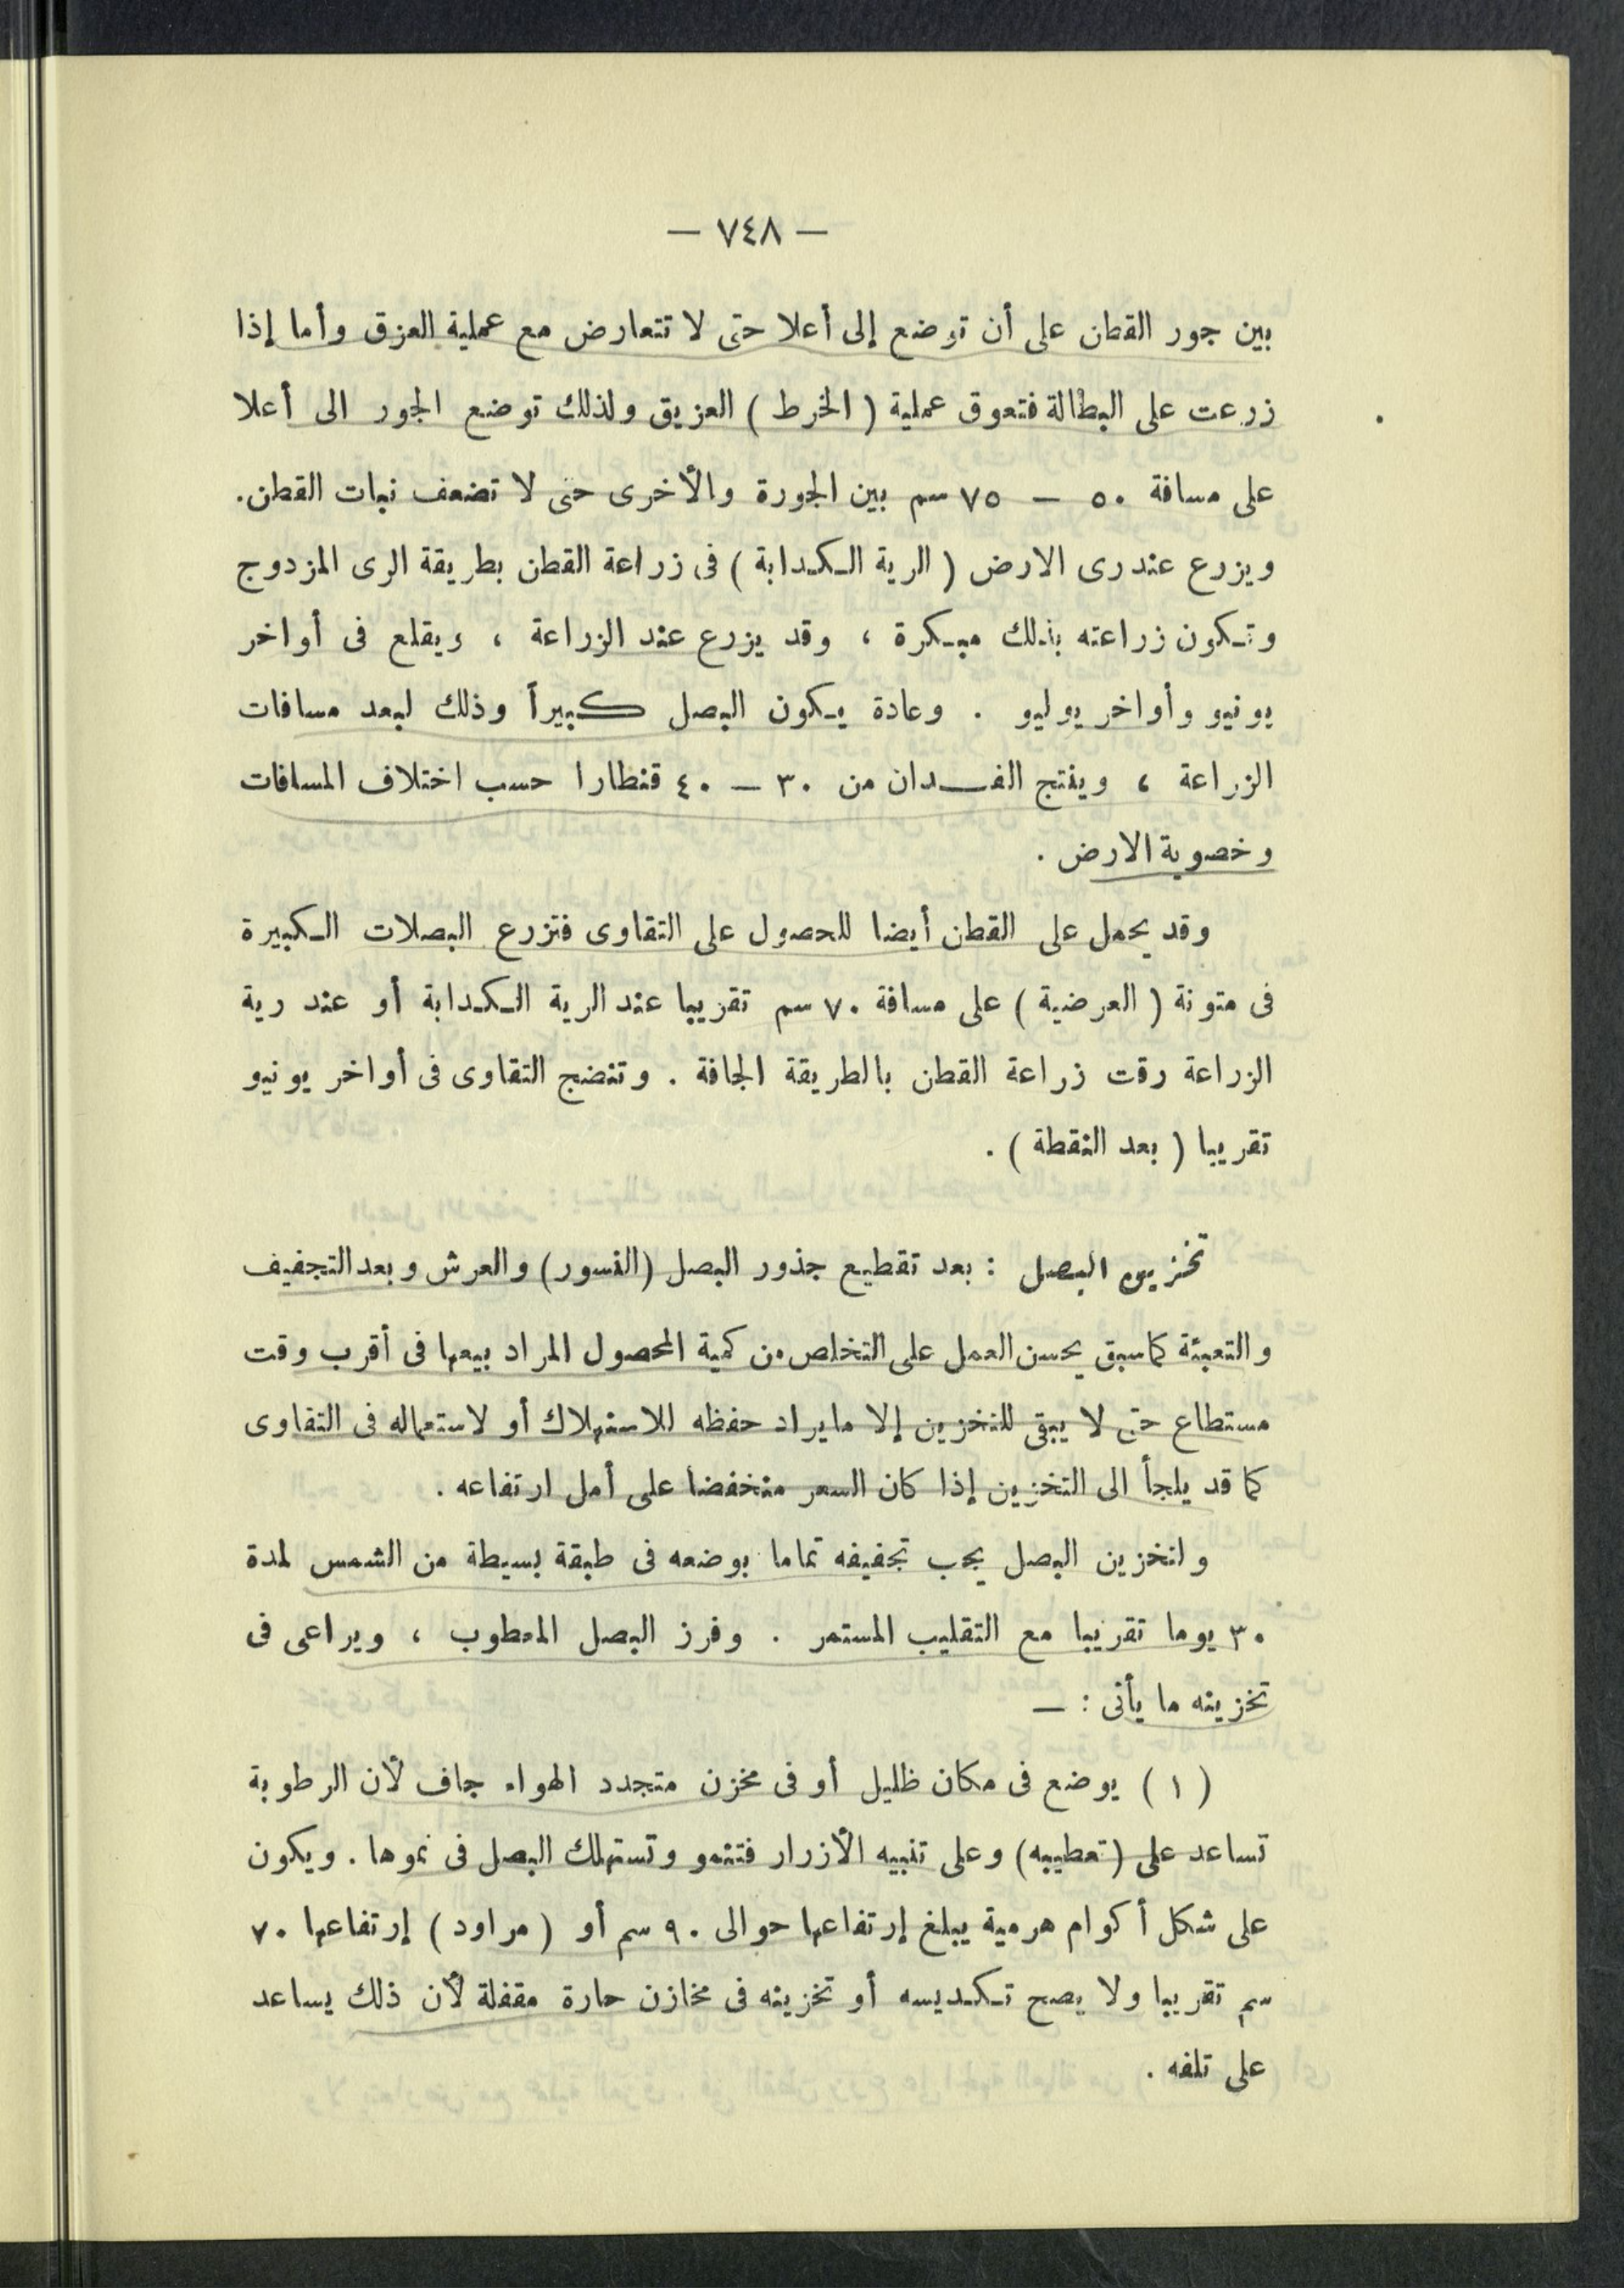 — ٧٤٨ —
بين جور القطن على أن توضع إلى أعلا حتى لا تتعارض مع عملية العزق وأما إذا
زرعت على البطالة فتعوق عملية ( الخرط ) العزيق ولذلك توضع الجور الى أعلا
على مسافة ٥٠ — ٧٥ سم بين الجورة والأخرى حتى لا تضعف نبات القطن.
ويزرع عند رى الارض ( الرية الكدابة ) فى زراعة القطن بطريقة الرى المزدوج
وتكون زراعته بذلك مبكرة ، وقد يزرع عند الزراعة ، ويقلع فى أواخر
يونيو وأواخر يوليو . وعادة يكون البصل كبيراً وذلك لبعد مسافات
الزراعة ، وينتج الفدان من ٣٠ — ٤٠ قنطارا حسب اختلاف المسافات
وخصوبة الارض .
وقد يحمل على القطن أيضا للحصول على التقاوى فتزرع البصلات الكبيرة
فى متونة ( العرضية ) على مسافة ٧٠ سم تقريبا عند الرية الكدابة أو عند رية
الزراعة وقت زراعة القطن بالطريقة الجافة . وتنضج التقاوى فى أواخر يونيو
تقريبا ( بعد النقطة ) .
تخزين البصل : بعد تقطيع جذور البصل (الفسور) والعرش وبعد التجفيف
والتعبئة كما سبق يحسن العمل على التخلص من كمية المحصول المراد بيعها فى أقرب وقت
مستطاع حتى لا يبقى للتخزين إلا ما يراد حفظه للاستهلاك أو لاستعماله فى التقاوى
كما قد يلجأ الى التخزين إذا كان السعر منخفضا على أمل ارتفاعه .
ولتخزين البصل يجب تجفيفه تماما بوضعه فى طبقة بسيطة من الشمس لمدة
٣٠ يوما تقريبا مع التقليب المستمر . وفرز البصل المعطوب ، ويراعى فى
تخزينه ما يأتى : —
( ١ ) يوضع فى مكان ظليل أو فى مخزن متجدد الهواء جاف لأن الرطوبة
تساعد على (تعطيبه) وعلى تنبيه الأزرار فتنمو وتستهلك البصل فى نموها . ويكون
على شكل أكوام هرمية يبلغ إرتفاعها حوالى ٩٠ سم أو ( مراود ) إرتفاعها ٧٠
سم تقريبا ولا يصح تكديسه أو تخزينه فى مخازن حارة مقفلة لأن ذلك يساعد
على تلفه .